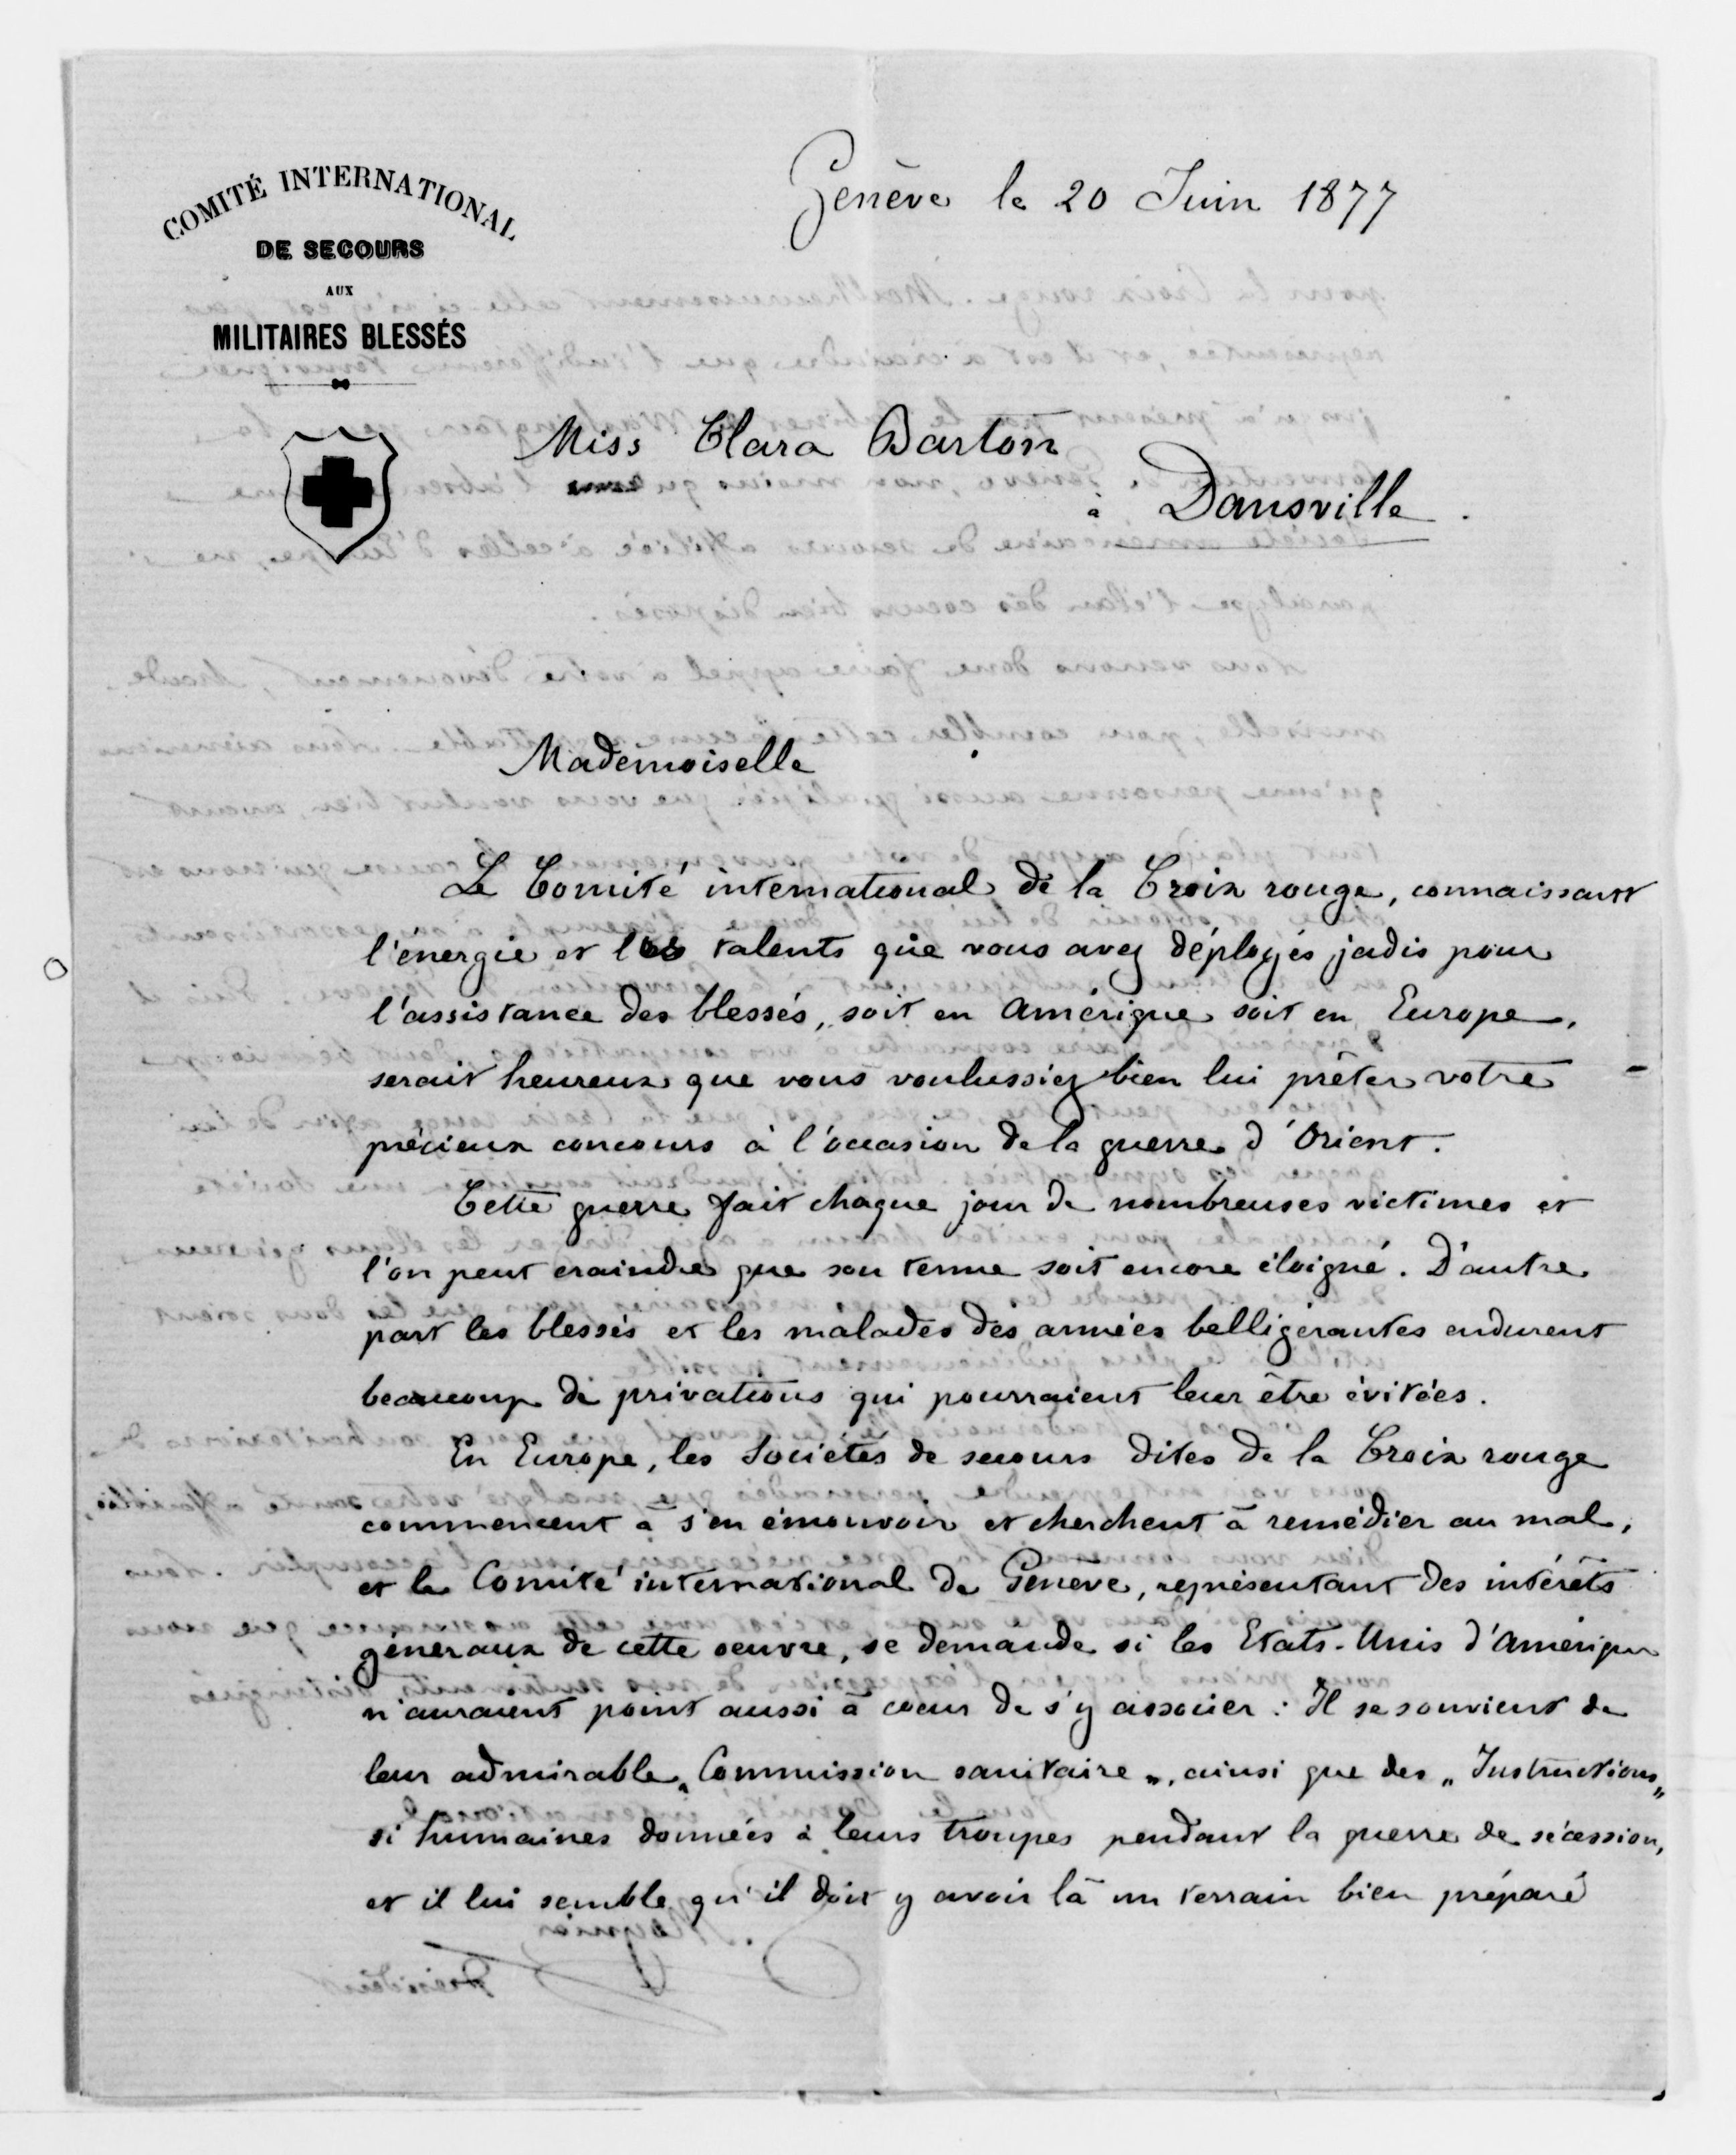 COMITÉ INTERNATIONAL
DE SECOURS
AUX
MILITAIRES BLESSÉS
Genève le 20 Juin 1877
Miss Clara Barton
à Dansville.
Mademoiselle
Le Comité international de la Croix rouge, connaissant
l'énergie et les talents que vous avez déployés jadis pour
l'assistance des blessés, soit en Amérique soit en Europe,
serait heureux que vous voulussiez bien lui prêter votre
précieux concours à l'occasion de la guerre d'Orient.
Cette guerre fait chaque jour de nombreuses victimes et
l'on peut craindre que son terme soit encore éloigné. D'autre
part les blessés et les malades des armées belligérantes endurent
beaucoup de privations qui pourraient leur être évitées.
En Europe, les Sociétés de secours dites de la Croix rouge
commencent à s'en émouvoir et cherchent à remédier au mal,
et le Comité international de Genève, représentant des intérêts
généraux de cette oeuvre, se demande si les Etats-Unis d'Amérique
n'auraient point aussi à coeur de s'y associer : Il se souvient de
leur admirable „Commission sanitaire„, ainsi que des „Instructions„
si humaines données à leurs troupes pendant la guerre de sécession,
et il lui semble qu'il doit y avoir là un terrain bien préparé